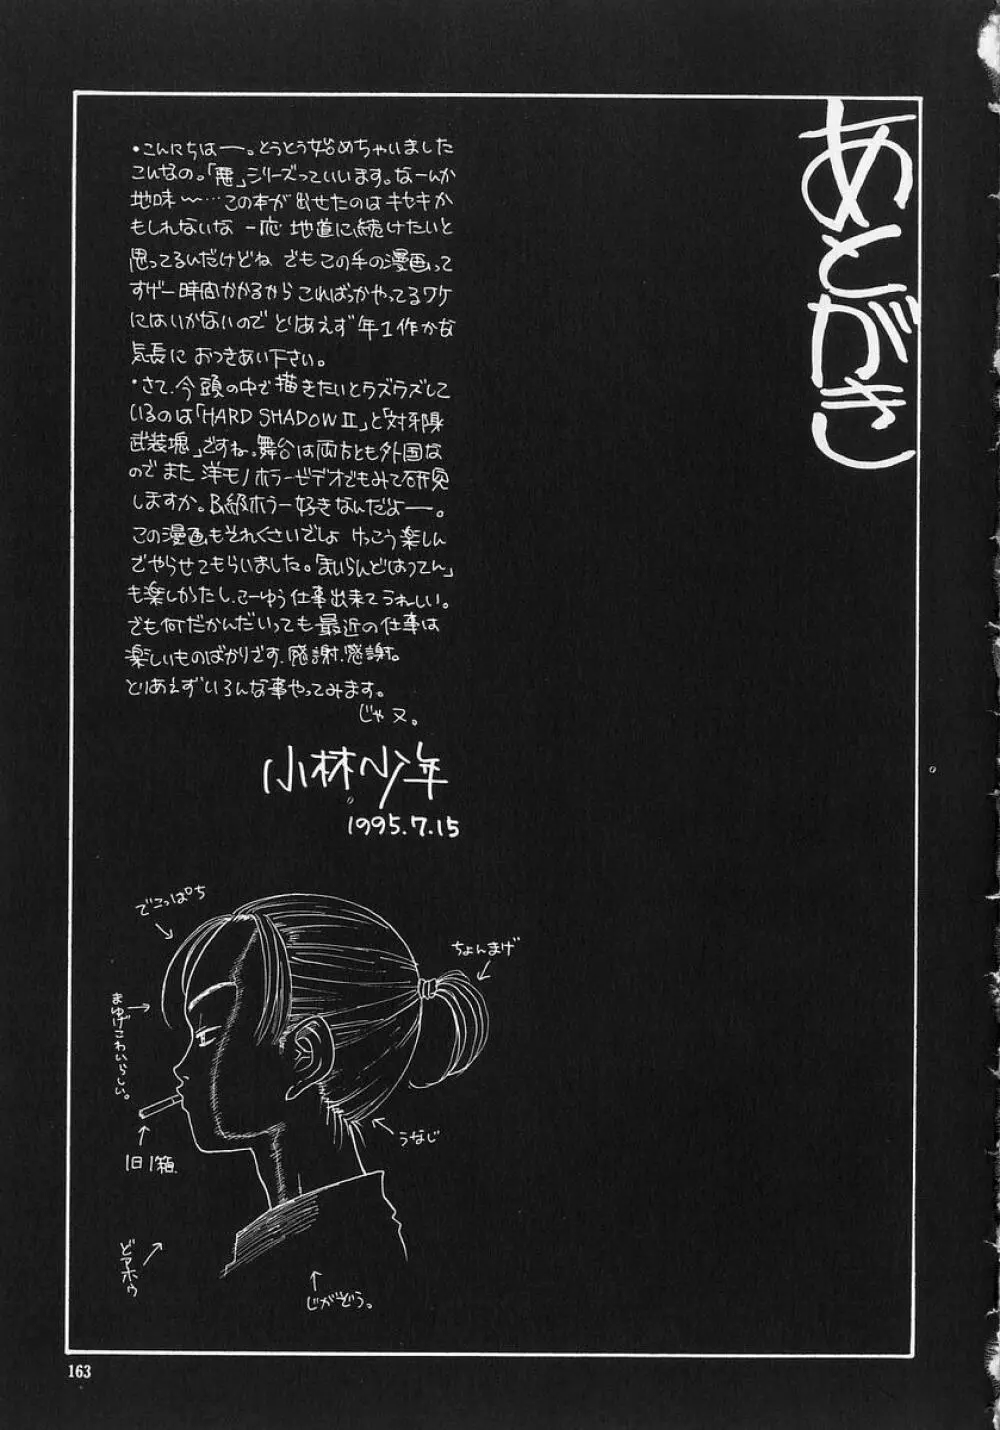 あとがき
・こんにちはー。とうとう始めちゃいました
こんなの。「悪」シリーズっていいます。なーんか
地味〜…この本が出せたのはキセキか
もしれないな 一応 地道に続けたいと
思ってるんだけどね でも この手の漫画って
すげー時間かかるから こればっかやってるワケ
にはいかないので とりあえず 年1作かな
気長に おつきあい下さい。
・さて、今頭の中で描きたいとウズウズして
いるのは「HARD SHADOW II」と「対邪
武装」ですね。舞台は両方とも外国な
ので また 洋モノホラービデオでもみて研究
しますか。B級ホラー好きなんだよー。
この漫画もそれくさいでしょ けっこう楽しん
でやらせてもらいました。「まいらんどはつでん」
も楽しかったし、こーゆう仕事出来てうれしい。
でも何だかんだいっても最近の仕事は
楽しいものばかりです、感謝、感謝。
とりあえずいろんな事やってみます。
じゃ又。
小林少年
1995.7.15
でこっぱち
ちょんまげ
まゆげこわいらしい。
うなじ
1日1箱
どアホゥ
じがぞう。
163